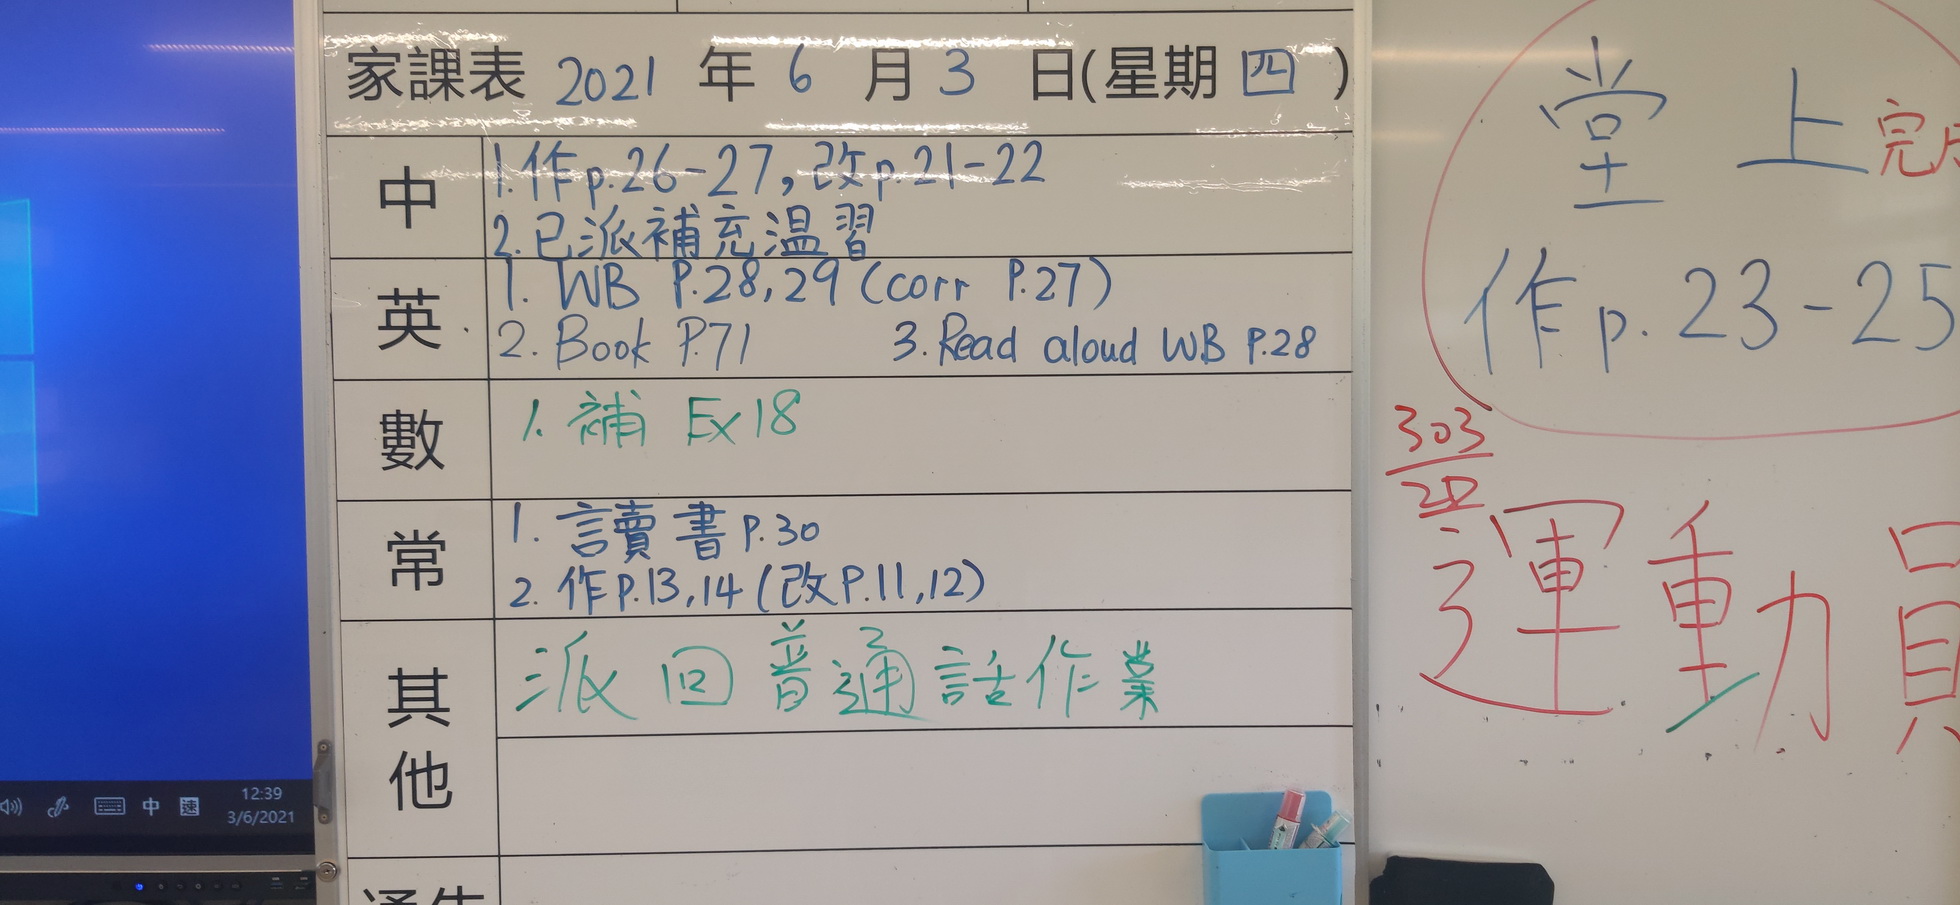 家課表 2021 年 6 月 3 日(星期 四 )
中
1. 作p.26-27,改p.21-22
2. 已派補充溫習
英
1. WB P.28,29 (corr P.27)
2. Book P.71 3. Read aloud WB P.28
數
1. 補 Ex18
常
1. 讀書 P.30
2. 作P.13,14 (改P.11,12)
其他
派回普通話作業
堂上完
作p.23-25
303
運動員
中 速
12:39
3/6/2021